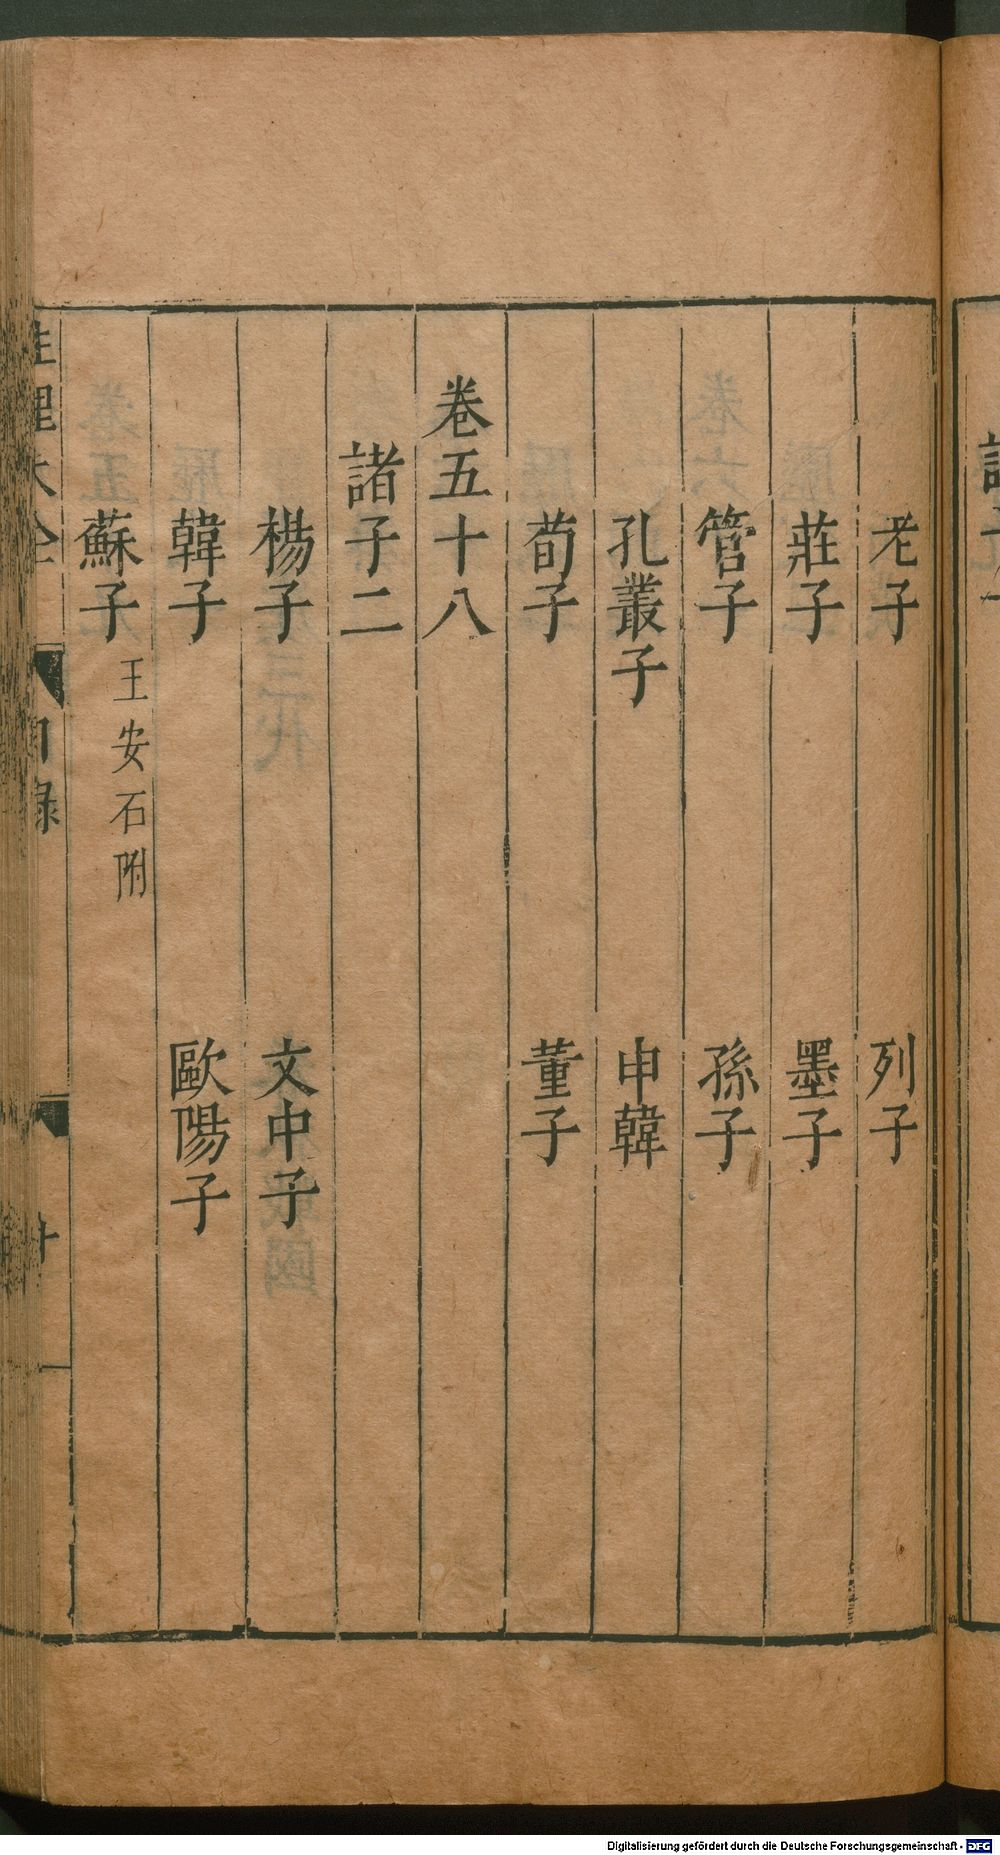 老子 列子
莊子 墨子
管子 孫子
孔叢子 申韓
荀子 董子
卷五十八
諸子二
楊子 文中子
韓子 歐陽子
蘇子 王安石附
性理大全 目錄
Digitalisierung gefördert durch die Deutsche Forschungsgemeinschaft - DFG